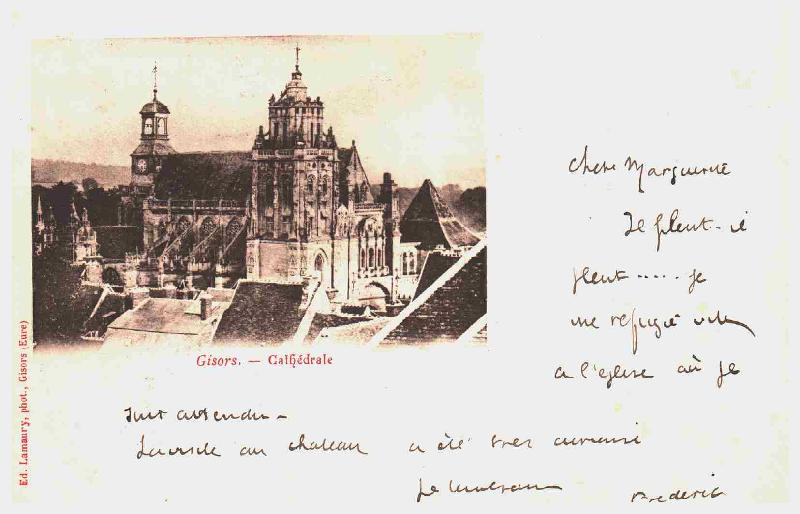 Gisors. — Cathédrale
Ed. Lamaury, phot., Gisors (Eure)
Chere Marguerite
Il pleut - il
pleut ..... je
me refugie vite
a l'eglise où je
suis attendu -
au chateau a été tres
Frederic